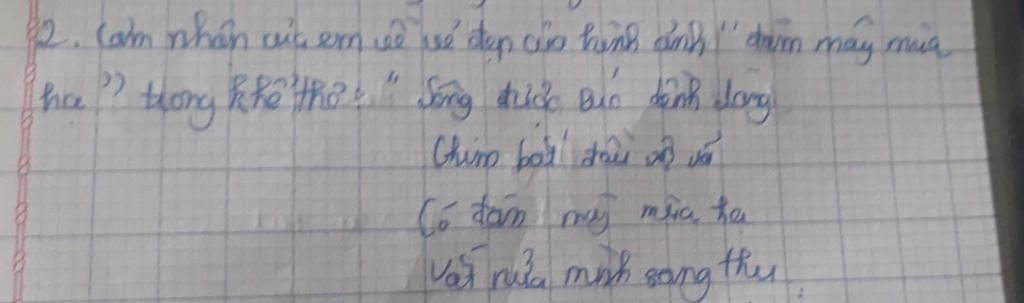 2. Cảm nhận của em về vẻ đẹp của hình ảnh "đám mây mùa
hạ" trong khổ thơ: "Sông được lúc dềnh dàng
Chim bắt đầu vội vã
Có đám mây mùa hạ
Vắt nửa mình sang thu